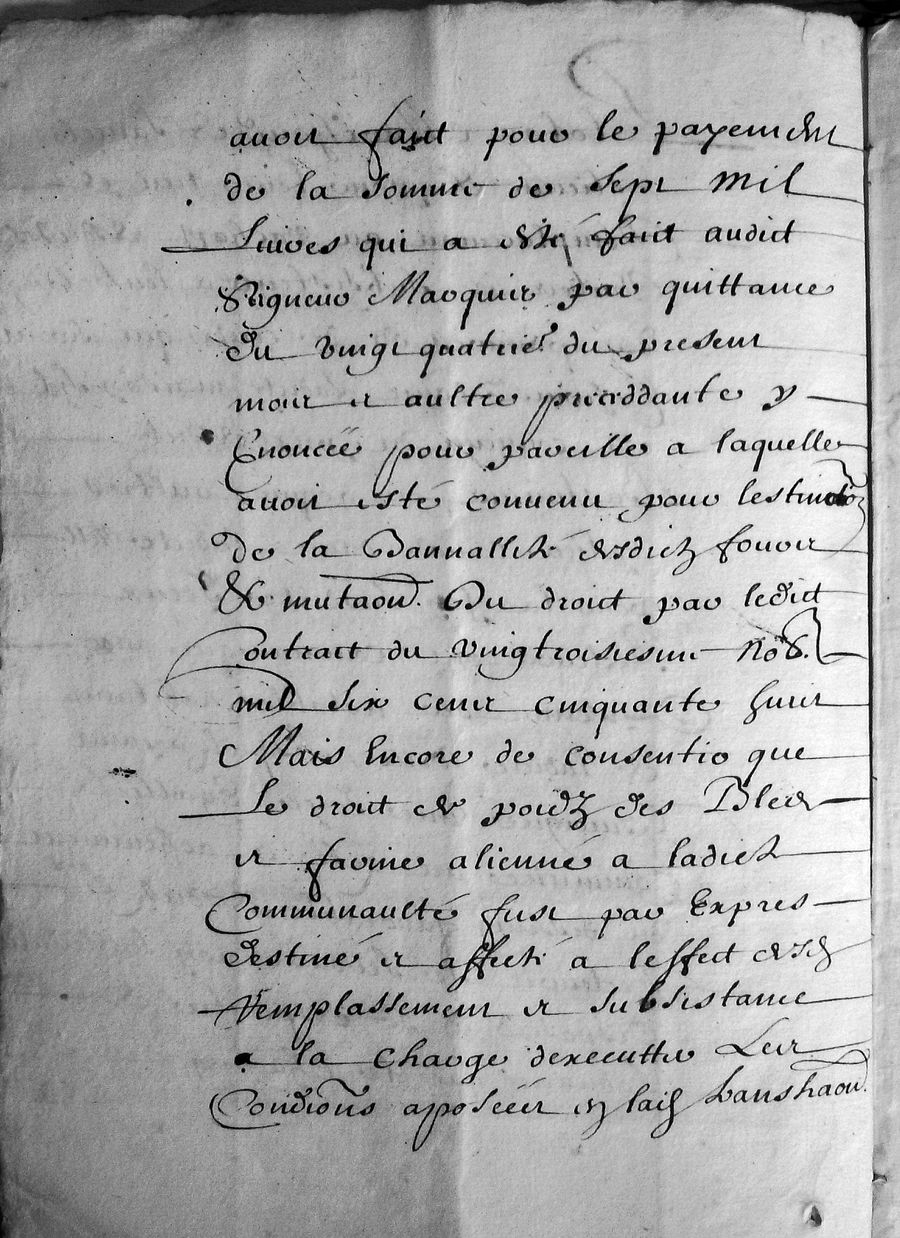 avoir faict pour le payement
de la somme de sept mil
Livres qui a esté faict audict
Seigneur Marquis par quittance
du vingt quatrie.e du present
mois et aultre preceddante y
Enoncée pour pareille a laquelle
avoit esté convenu pour lestinction
de la Bannallité desdictz fours
& Du droict par ledict
Contract du vingtroisiesme No
mil six cent cinquante huict
Mais Encore de consentir que
Le droict de poidz des Bledz
et farine alienné a ladicte
Communaulté fust par Expres
destiné et affecté a leffect desd
Remplassement et subsistance
a la charge dexecutter Les
Condions aposéés en laict transaon